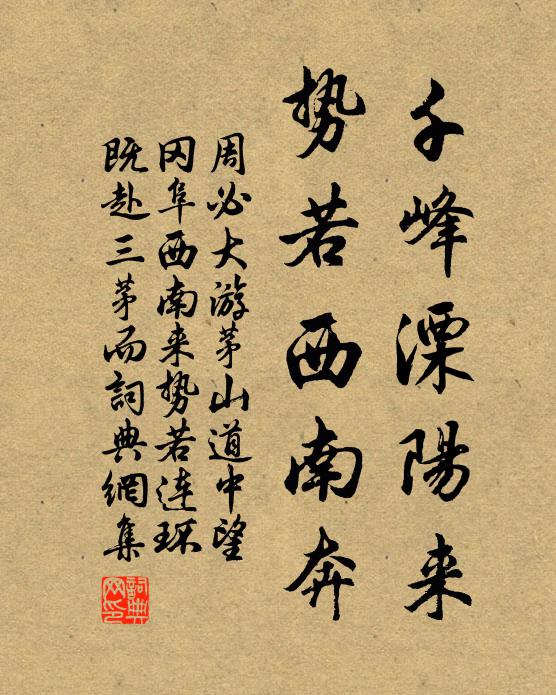 千峰溧陽来
势若西南奔
周必大游茅山道中望
冈阜西南来势若连环
既赴三茅而詞典網集
詞典网印